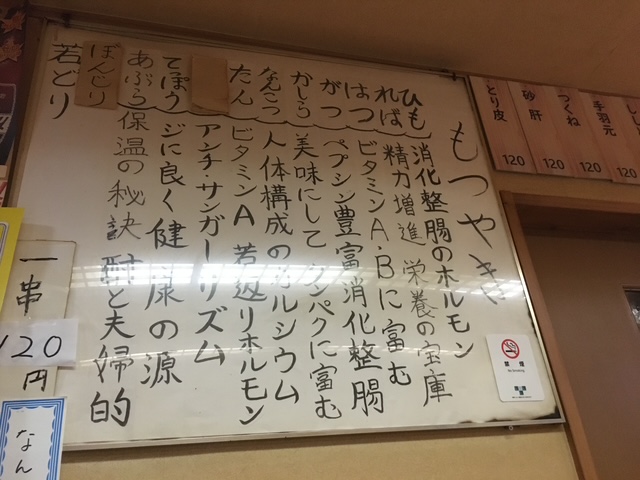 もつやき
ひも 消化整腸のホルモン
れば 精力増進 栄養の宝庫
はつ ビタミンA・Bに富む
がつ ペプシン豊富消化整腸
かしら 美味にして タンパクに富む
なんこつ 人体構成のカルシウム
たん ビタミンA 若返りホルモン
アンチ・サンガーリズム
てぽう ジに良く健康の源
あぶら 保温の秘訣 酎と夫婦的
ぼんじり
若どり
とり皮 120
砂肝 120
つくね 120
手羽元 120
120
一串
120
円
なん
禁煙
No Smoking